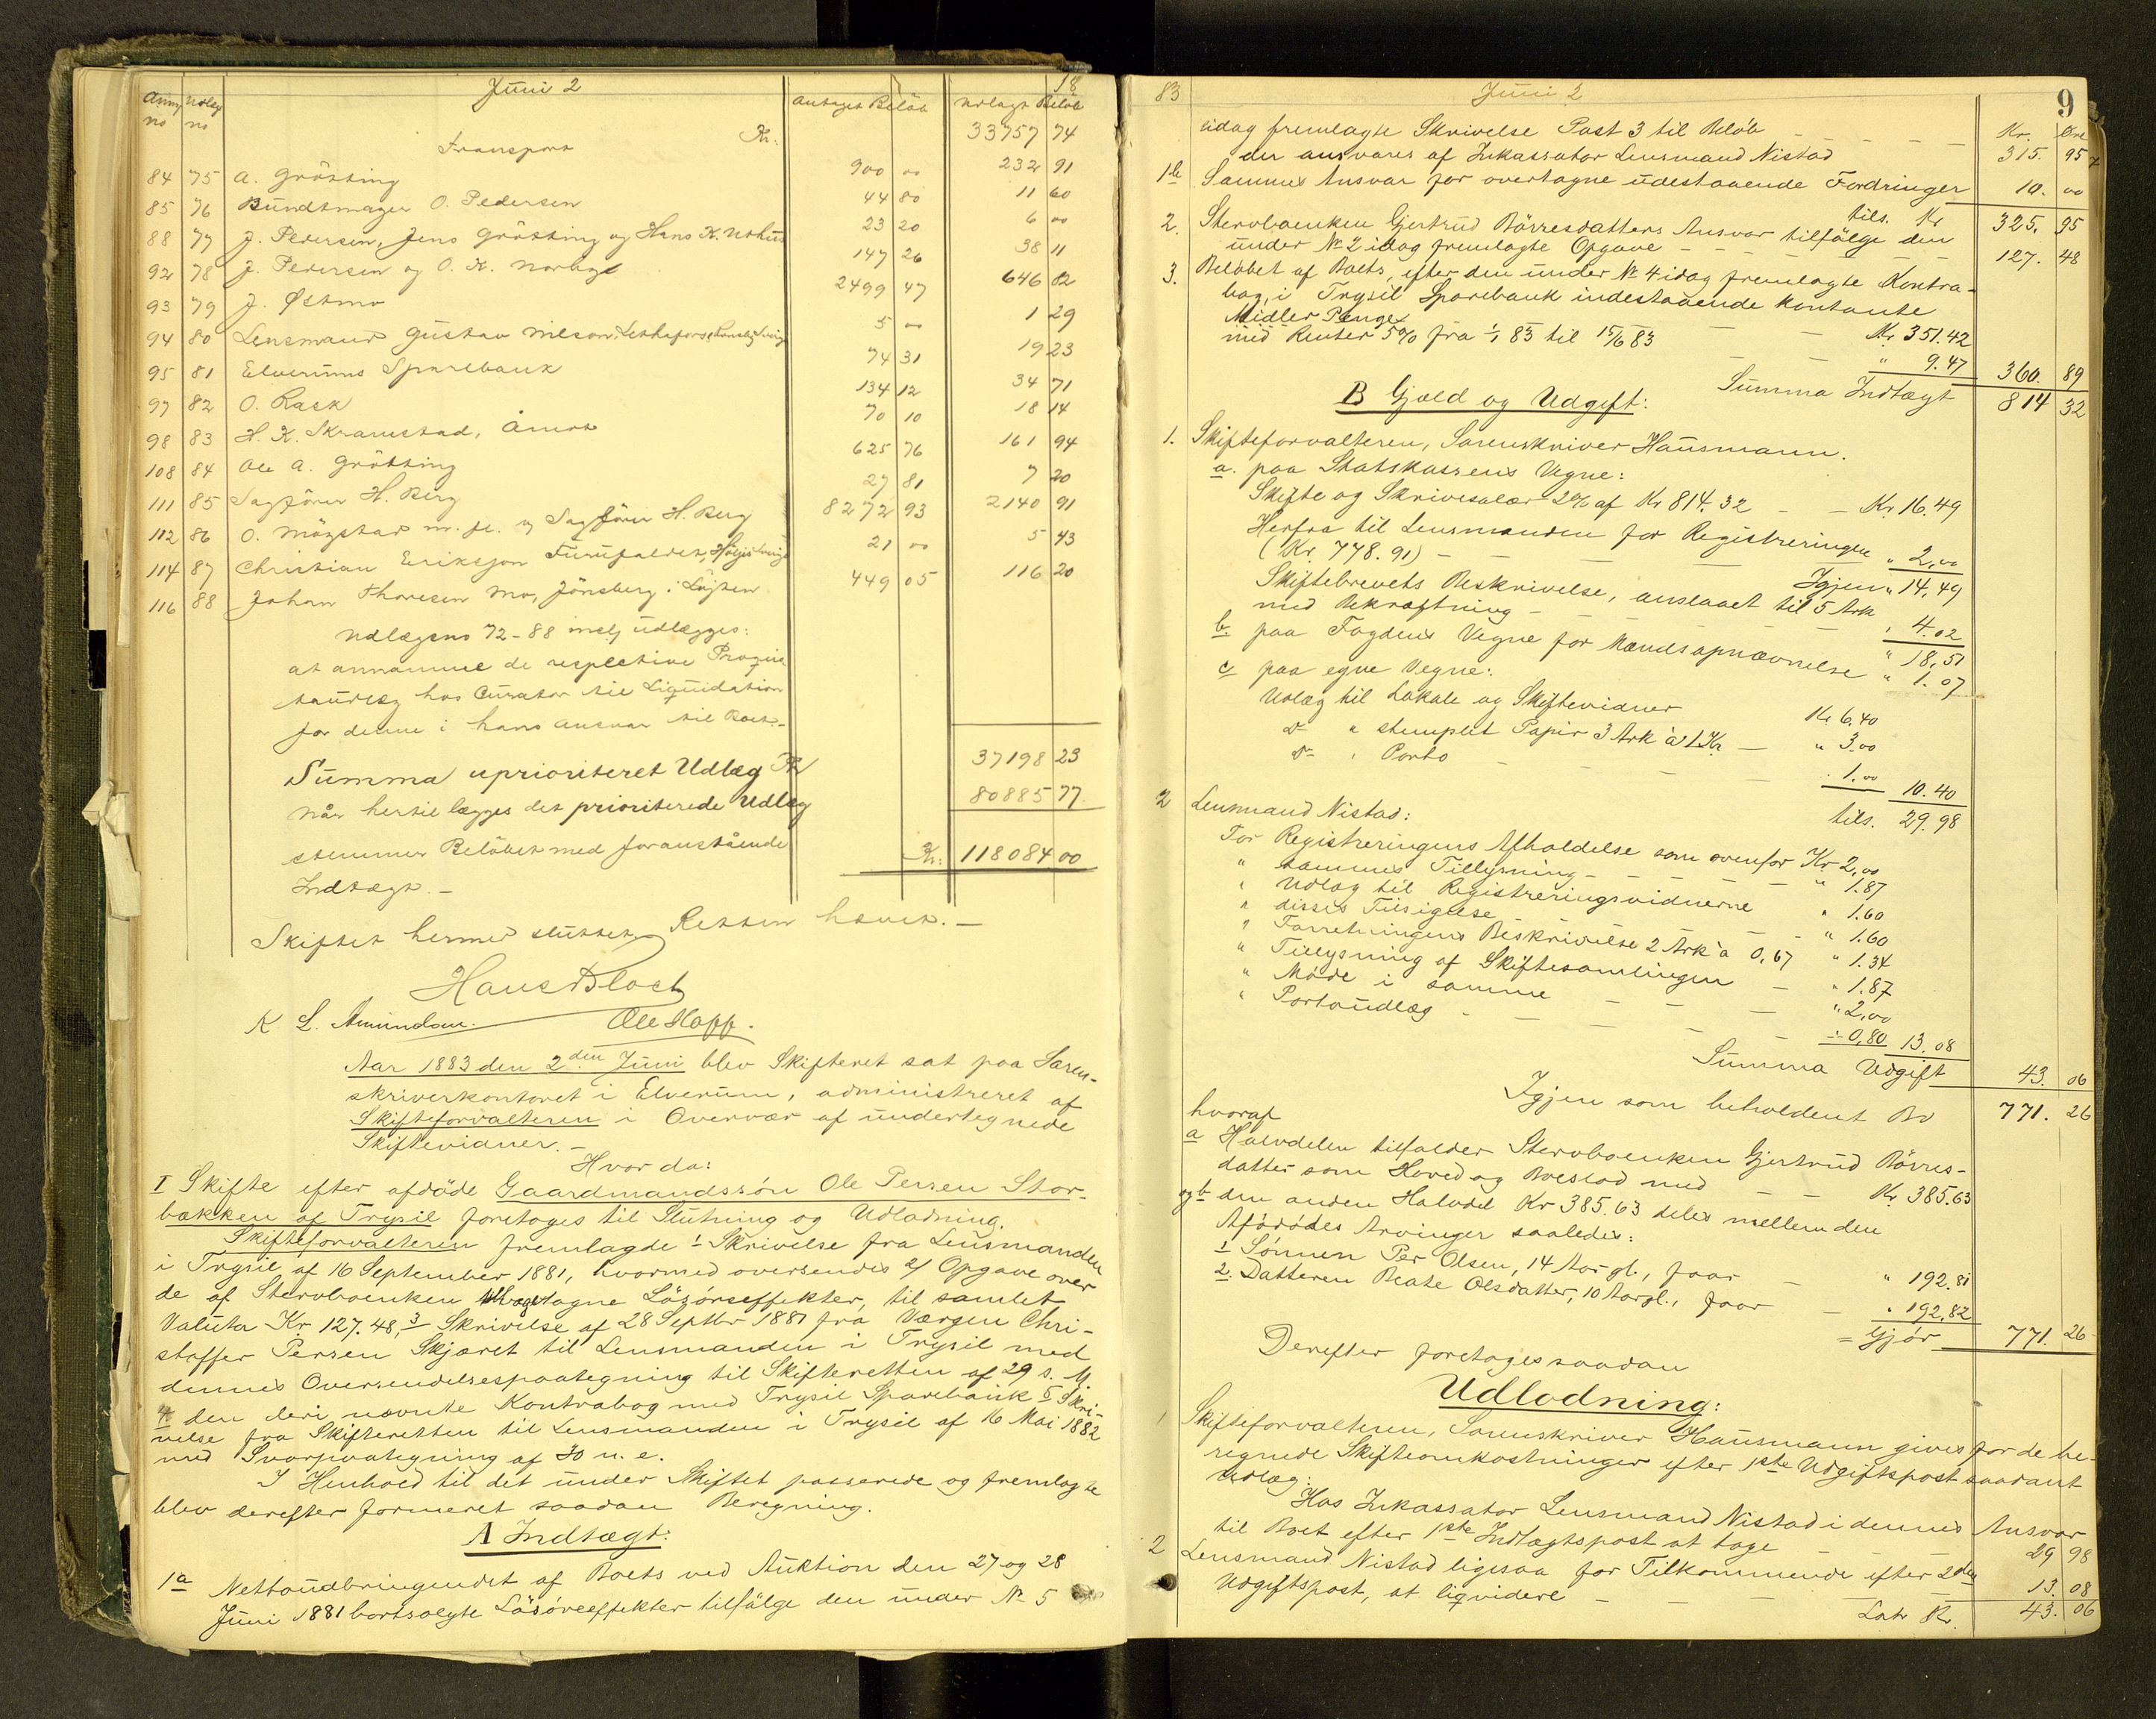 Juni 2
18
Anm no Udlæg no
Antaget Beløb Udlagt Beløb
Transport Kr. 33757 74
84 75 A. Grötting 900 00 232 91
85 76 Bundtmager O. Pedersen 44 80 11 60
88 77 J. Pedersen, Jens Grötting og Hans K. Nthus 23 20 6 00
92 78 J. Pedersen og O. K. Norbye 147 26 38 11
93 79 J. Østmo 2499 47 646 82
94 80 Lensmand Gustav Nilson, 5 00 1 29
95 81 Elverums Sparebank 74 31 19 23
97 82 O. Rask 134 12 34 71
98 83 H. K. Skramstad, Åmot 70 10 18 14
108 84 Ole A. Grötting 625 76 161 94
111 85 Sagförer H. Berg 27 81 7 20
112 86 O. Mögstad m. fl. v Sagförer H. Berg 8272 93 2140 91
114 87 Christian Eriksson Furufaldet, Höljes Sverige 21 00 5 43
116 88 Johan Thoresen Mo, Jönsberg i Löjten 449 05 116 20
Udlægsno 72-88 incl udlægges:
at annamme de respective Prograsa
tandlæg hos Curator til Liquidation
for denne i hans Ansvar til Boet.-
Summa uprioriteret Udlæg Kr 37198 23
Når hertil lægges det prioriterede Udlæg 80885 77
stemmer Beløbet med foranstående
Indtægt.- Kr: 118084 00
Skiftet hermed sluttet. Retten hævet.-
Hans Bloch
K L. Amundsen. Ole Hoff.
Aar 1883 den 2den Juni blev Skifteret sat paa Soren-
skriverkontoret i Elverum, administreret af
Skifteforvalteren i Overvær af undertegnede
Skiftevidner.-
Hvor da:
I Skifte efter afdöde Gaardmandssön Ole Persen Stor-
bækken af Trysil foretoges til Slutning og Udlodning.
Skifteforvalteren fremlagde 1 Skrivelse fra Lensmanden
i Trysil af 16 September 1881, hvormed oversendes 2/ Opgave over
de af Stervboenken tagne Lösöreeffekter, til samlet
Valuta Kr 127.48, 3 Skrivelse af 28 Septbr 1881 fra Værgen Chri-
stoffer Persen Skjæret til Lensmanden i Trysil med
dennes Oversendelsespaategning til Skifteretten af 29 s. M.
4 den deri nævnte Kontrabog med Trysil Sparebank 5 Skri-
velse fra Skifteretten til Lensmanden i Trysil af 16 Mai 1882
med Svarpaategning af 30 n. e.
I Henhold til det under Skiftet passerede og fremlagte
blev derefter formeret saadan Beregning.
A Indtægt:
1a Nettoudbringendet af Boets ved Auktion den 27 og 28
Juni 1881 bortsolgte Lösöreeffekter tilfölge den under No 5
83 Juni 2 9
Kr. Øre
idag fremlagte Skrivelse Post 3 til Beløb
der ansvares af Inkassator Lensmand Nistad 315. 95
1b Sammes Ansvar for overtagne udestaaende Fordringer 10. 00
tils. Kr 325. 95
2. Stervboenken Gjertrud Börresdatters Ansvar tilfölge den
under No 2 idag fremlagte Opgave 127. 48
3. Beløbet af Boets, efter den under No 4 idag fremlagte Kontra-
bog, i Trysil Sparebank indestaaende kontante
Midler Penge Kr 351.42
med Renter 5% fra 1/1 83 til 15/6 83 " 9.47 360. 89
Summa Indtægt 814 32
B Gjæld og Udgift:
1. Skifteforvalteren, Sorenskriver Hausmann.
a. paa Statskassens Vegne:
Skifte og Skrivesalær 2% af Kr 814.32 Kr. 16.49
Herfra til Lensmanden for Registreringen
(Kr. 778.91) " 2,00
Igjen " 14,49
Skiftebrevets Beskrivelse, anslaaet til 5 Ark
med Bekræftning " 4.02
" 18,51
b. paa Fogdens Vegne for Mændsopnævnelse " 1.07
c paa egne Vegne:
Udlæg til Lokale og Skiftevidner Kr. 6.40
do " stemplet Papir 3 Ark à 1 Kr " 3.00
do " Porto " 1.00 10.40
tils. 29.98
2 Lensmand Nistad:
For Registreringens Afholdelse som ovenfor Kr 2,00
" sammes Tillysning " 1.87
" Udlæg til Registreringsvidnerne " 1.60
" disses Tilsigelse " 1.60
" Forretningens Beskrivelse 2 Ark à 0,67 " 1.34
" Tillysning af Skiftesamlingen " 1.87
" Möde i samme " 2,00
" Portoudlæg 0,80 13.08
Summa Udgift 43. 06
Igjen som beholdent Bo 771. 26
hvoraf
a Halvdelen tilfalder Stervboenken Gjertrud Börres-
datter som Hoved og Boeslod med Kr. 385.63
og b den anden Halvdel Kr 385.63 deles mellem den
Afdödes Arvinger saaledes:
1 Sönnen Per Olsen, 14 Aar gl., faar " 192.81
2. Datteren Beate Olsdatter, 10 Aar gl., faar " 192,82
= Gjör 771. 26
Derefter foretages saadan
Udlodning:
1 Skifteforvalteren, Sorenskriver Hausmann gives for de be-
regnede Skifteomkostninger efter 1ste Udgiftspost saadant
Udlæg:
Hos Inkassator Lensmand Nistad i dennes Ansvar
til Boet efter 1ste Indtægtspost at tage 29 98
2 Lensmand Nistad ligesaa for Tilkommende efter 2den
Udgiftspost, at liqvidere 13. 08
Latr Kr. 43. 06